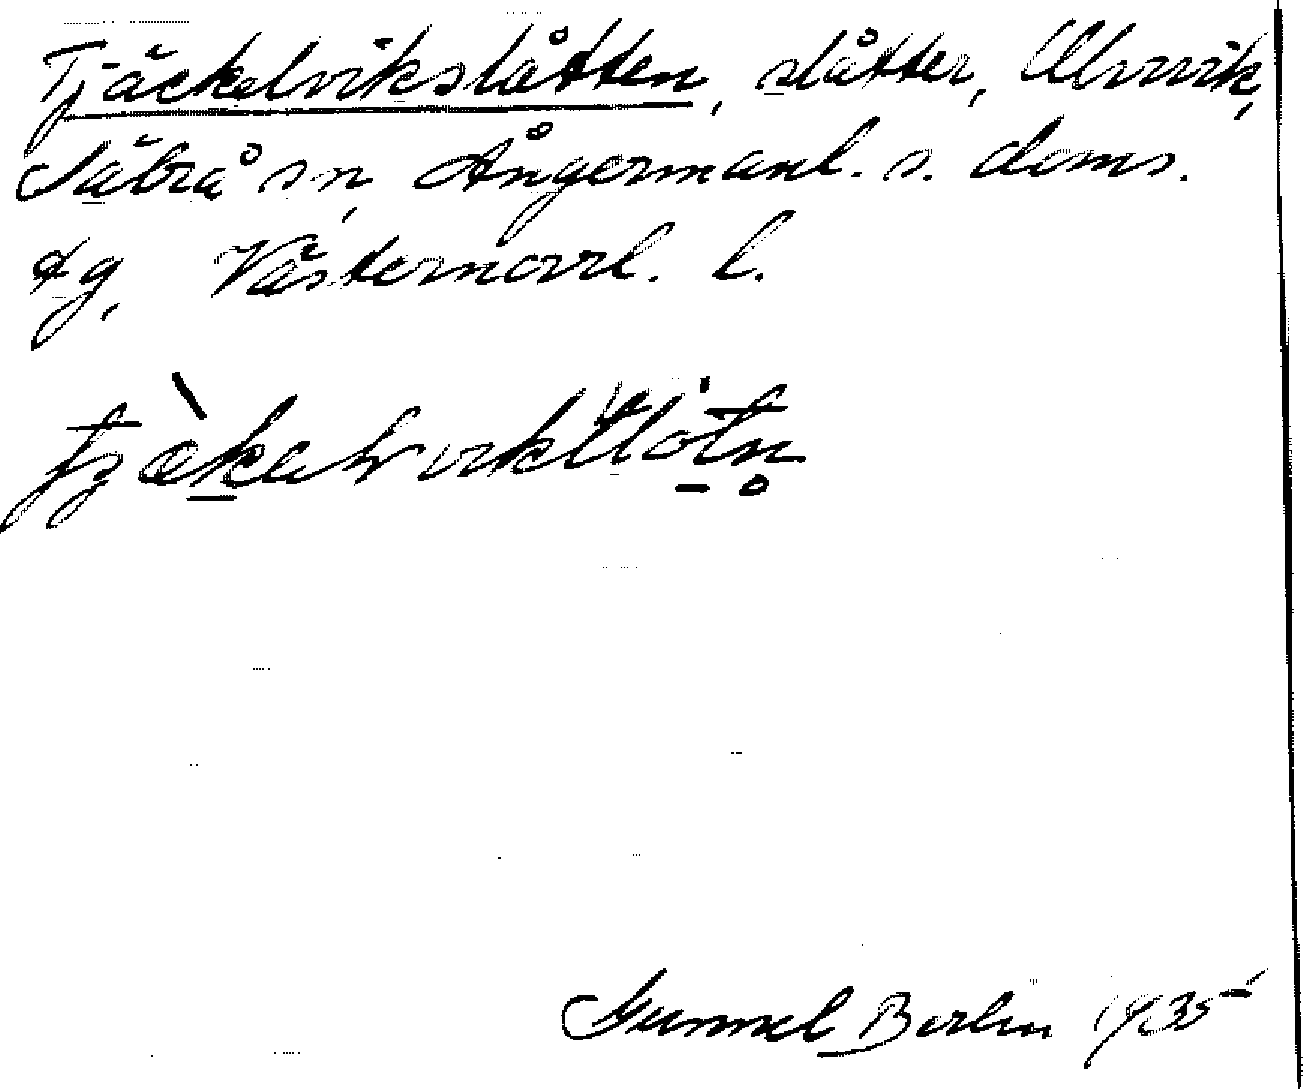 Tjäckelvikslåtten, slåtter, Ulvvik,
Säbrå sn, Ångermanl. s. doms.
tg, Västernorrl. l.
Gunnel Berlin 1935